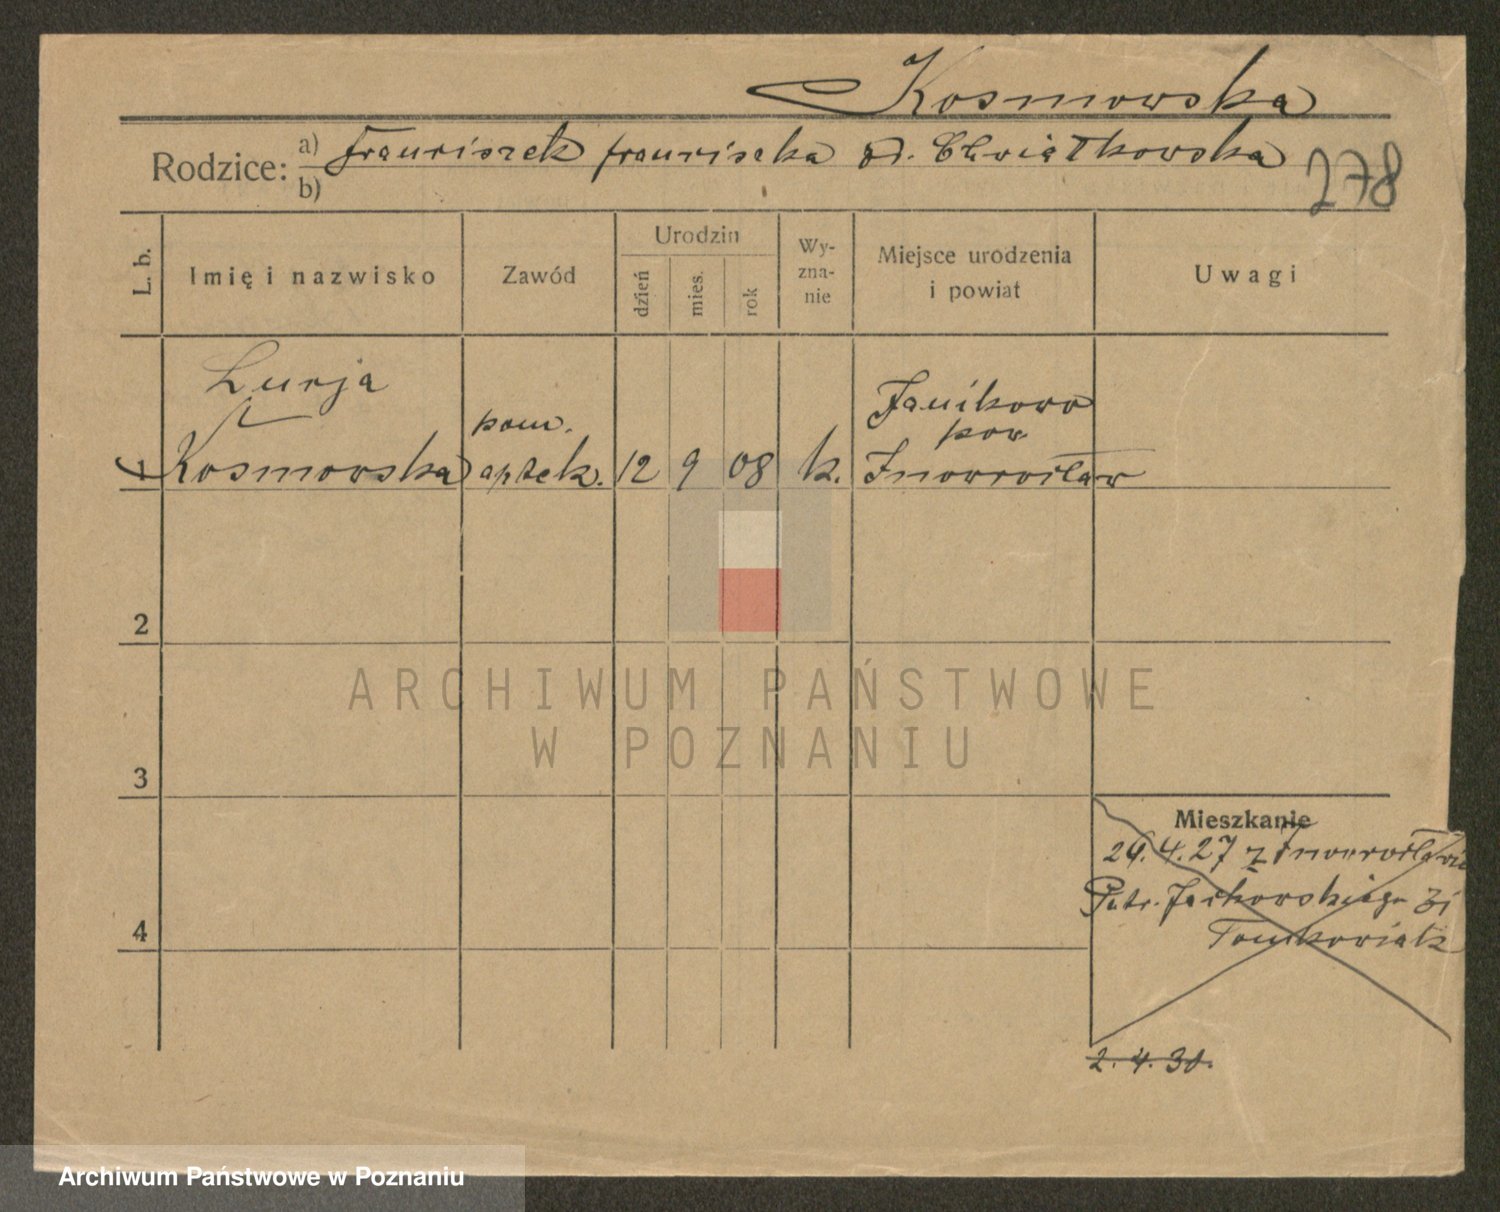 Kosmowska
Rodzice: a) Franciszek Franciszka
b)
278
L. b.
Imię i nazwisko
Zawód
Urodzin
dzień
mies.
rok
Wy-
zna-
nie
Miejsce urodzenia
i powiat
Uwagi
Łucja
Kosmowska
pom.
aptek.
12 9 08 k.
Janikowo
pow
Inowrocław
1
2
3
4
Mieszkanie
4.27 z Inowrocławia
Patr. Jackowskiego 31
Tomkowiak
2. 4. 30.
ARCHIWUM PAŃSTWOWE
W POZNANIU
Archiwum Państwowe w Poznaniu